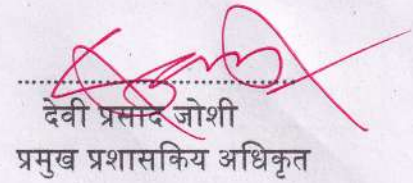 देवी प्रसाद जोशी
प्रमुख प्रशासकिय अधिकृत